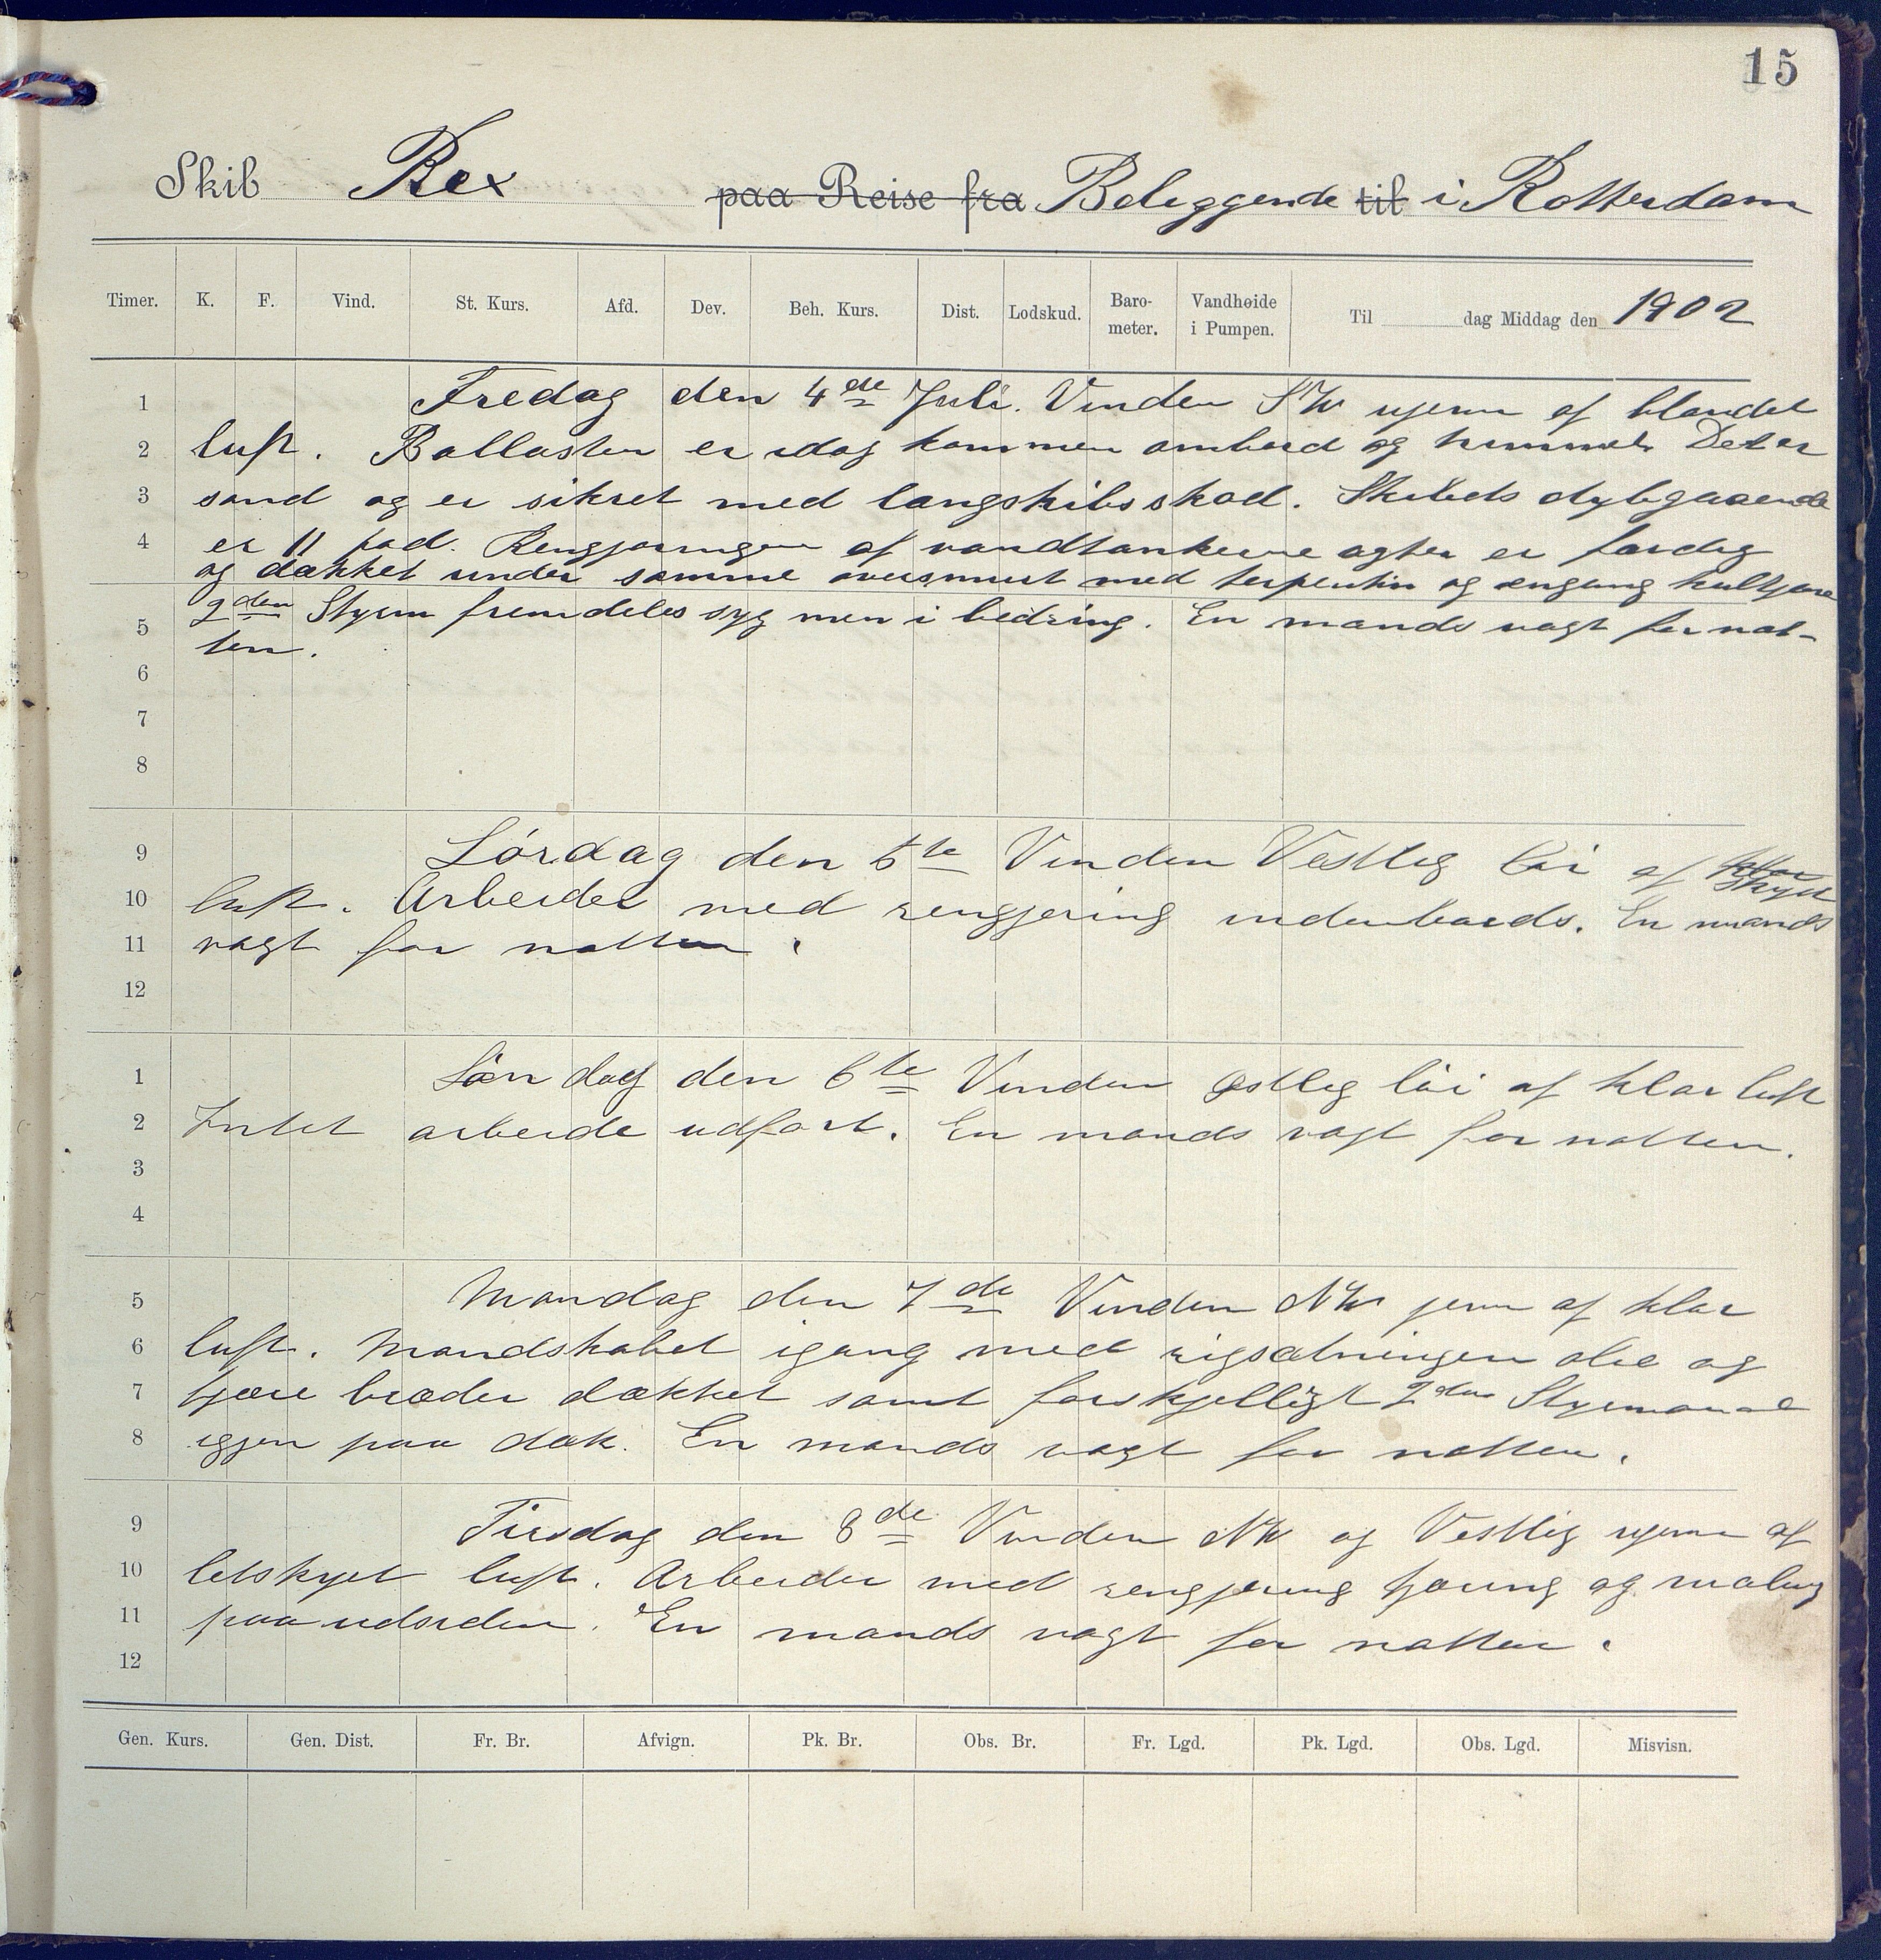 15
Skib Rex paa Reise fra Beliggende til i Rotterdam
Timer. K. F. Vind. St. Kurs. Afd. Dev. Beh. Kurs. Dist. Lodskud. Baro-meter. Vandhøide i Pumpen. Til dag Middag den 1902
1 Fredag den 4de Juli. Vinden SW ujevn af blandet
2 luft. Ballasten er idag kommen ombord og trimmet. Det er
3 sand og er sikret med langskibsskod. Skibets dybgaaende
4 er 11 fod. Rengjøringen af vandtankerne agter er færdig
og dækket under samme oversmurt med terpentin og engang kultjære
2den Styrm fremdeles syg men i bedring. En mands vagt for nat-
5 ten.
6
7
8
9 Lørdag den 5te Vinden Vestlig løi af skyet
10 luft. Arbeidet med rengjøring indenbords. En mands
11 vagt for natten.
12
1 Søndag den 6te Vinden østlig løi af klar luft
2 Intet arbeide udført. En mands vagt for natten.
3
4
5 Mandag den 7de Vinden NW jevn af klar
6 luft. Mandskabet igang med rigsætningen olie og
7 tjære bræder dækket samt forskjelligt 2den Styrmand
8 igjen paa dæk. En mands vagt for natten.
9 Tirsdag den 8de Vinden NW og Vestlig ujevn af
10 letskyet luft. Arbeider med rengjøring tjæring og maling
11 paa udsiden. En mands vagt for natten.
12
Gen. Kurs. Gen. Dist. Fr. Br. Afvign. Pk. Br. Obs. Br. Fr. Lgd. Pk. Lgd. Obs. Lgd. Misvisn.